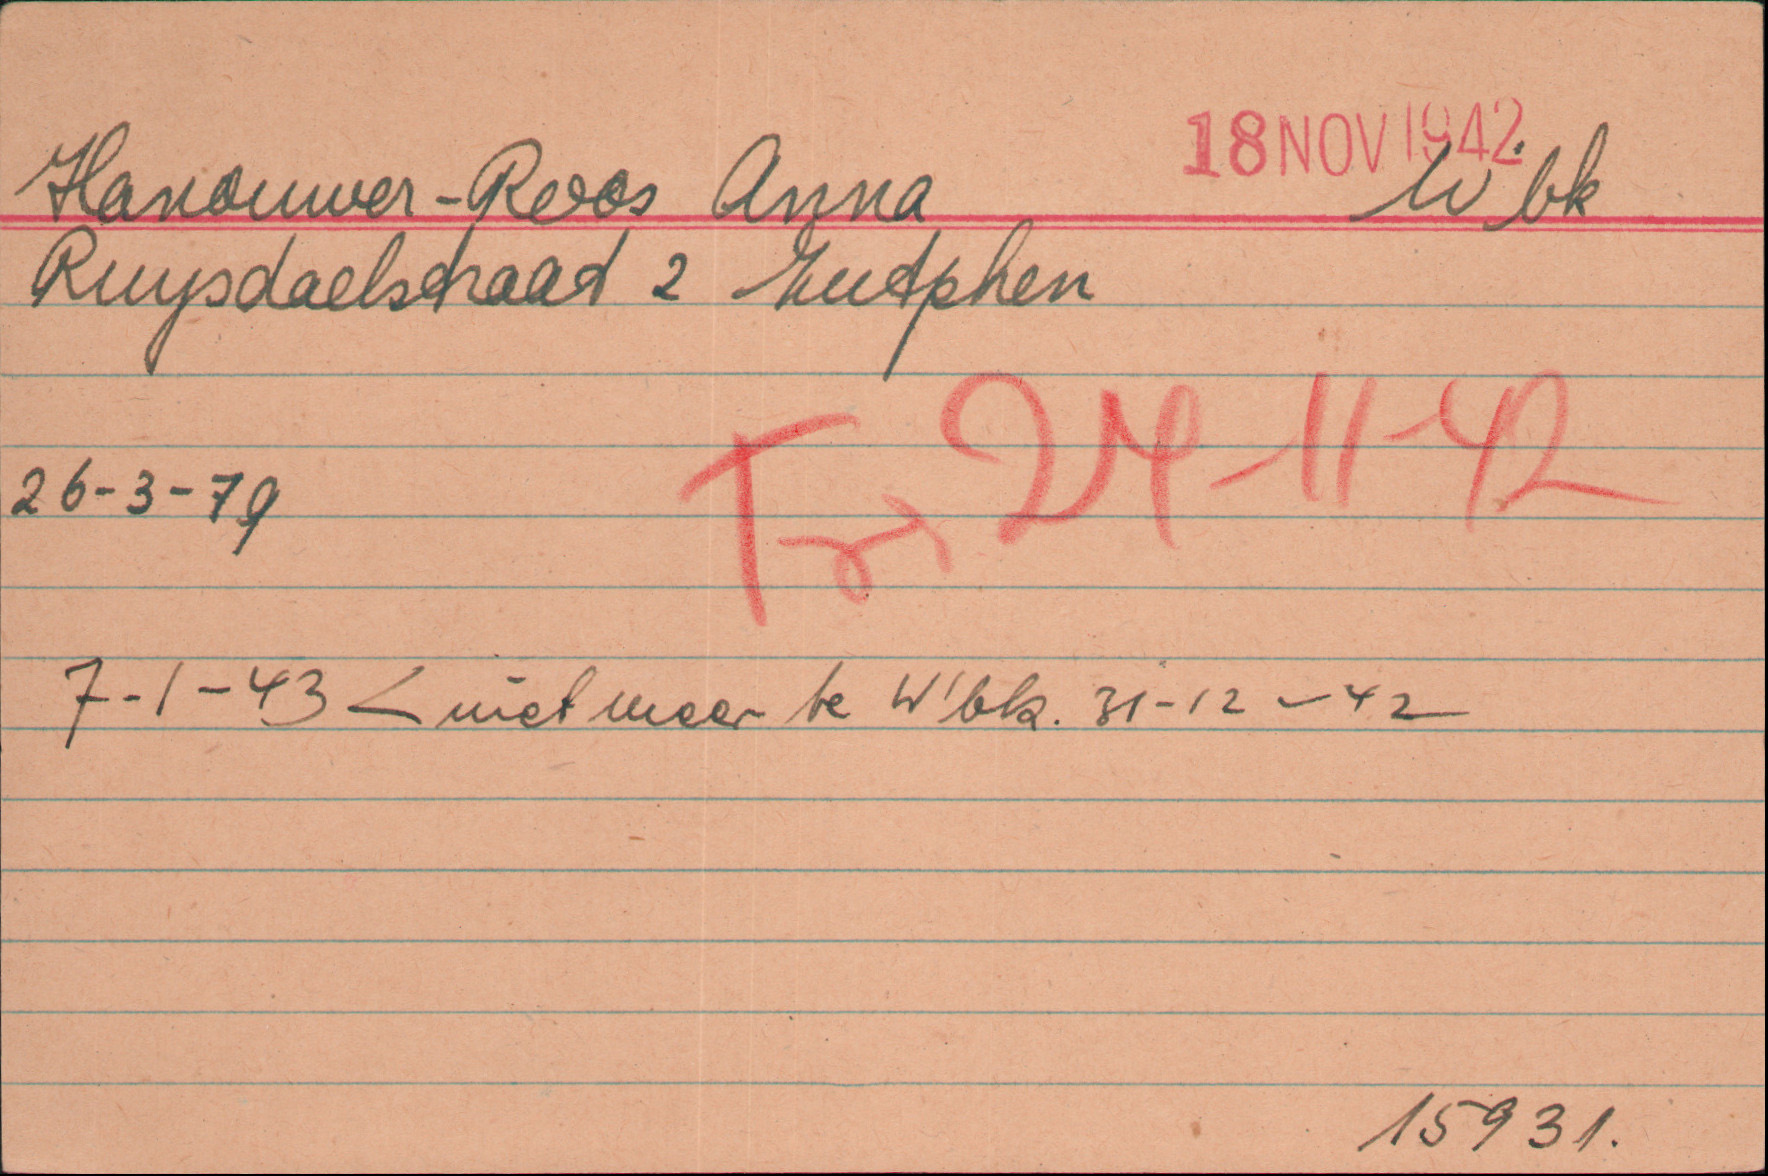 18 NOV 1942
Hanouwer-Roos Anna W'bk
Ruysdaelstraat 2 Zutphen
Tr. 24-11-42
26-3-79
7-1-43 < niet meer te W'bk. 31-12-42
15931.